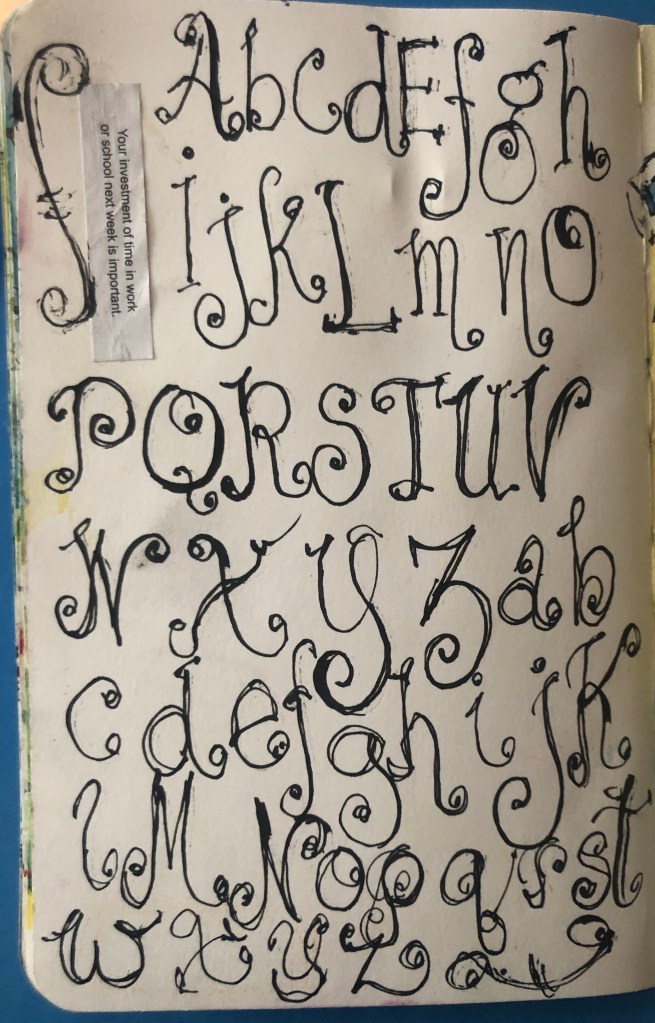 AbcdEfgh
Your investment of time in work
or school next week is important.
ijkLmnO
PQRSTUV
WXYZab
cdefghijK
lMNopqrst
wxyz